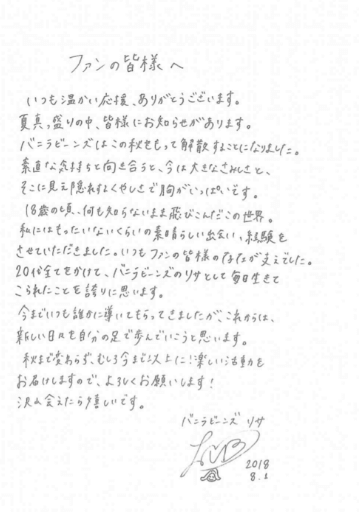 ファンの皆様へ
いつも温かい応援、ありがとうございます。
夏真っ盛りの中、皆様にお知らせがあります。
バニラビーンズはこの秋をもって解散することになりました。
素直な気持ちと向き合うと、今は大きなさみしさと、
そこに見え隠れするくやしさで胸がいっぱいです。
18歳の頃、何も知らないまま飛びこんだこの世界。
私にはもったいないくらいの素晴らしい出会い、経験を
させていただきました。いつもファンの皆様のみなが支えでした。
20代全てをかけて、バニラビーンズのリサとして毎日生きて
こられたことを誇りに思います。
今までいつも誰かに導いてもらってきましたが、これからは、
新しい日々を自分の足で歩んでいこうと思います。
秋まで変わらず、むしろ今まで以上に!楽しい活動を
お届けしますので、よろしくお願いします!
沢山会えたら嬉しいです。
バニラビーンズ リサ
2018
8.1